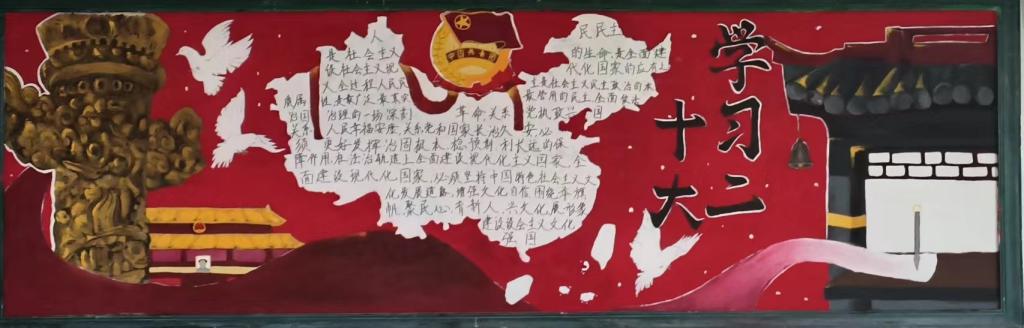 学习二
十大
人
民民主
是社会主义
的生命,是全面建
设社会主义现
代化国家的应有之
大全过程人民民
主是社会主义民主政治的本
性是最广泛最真实
最管用的民主全面依法
治国
治理的一场深刻
革命,关系
党执政兴国
关系
人民幸福安康,关系党和国家长治久安,必
须
更好发挥治国根本稳预期利长远的保
障作用,在法治轨道上全面建设现代化主义国家,全
面建设现代化国家,必须坚持中国特色社会主义文
化发展道路,增强文化自信围绕举旗
帜,聚民心,育新人,兴文化展形象
建设社会主义文化
强国